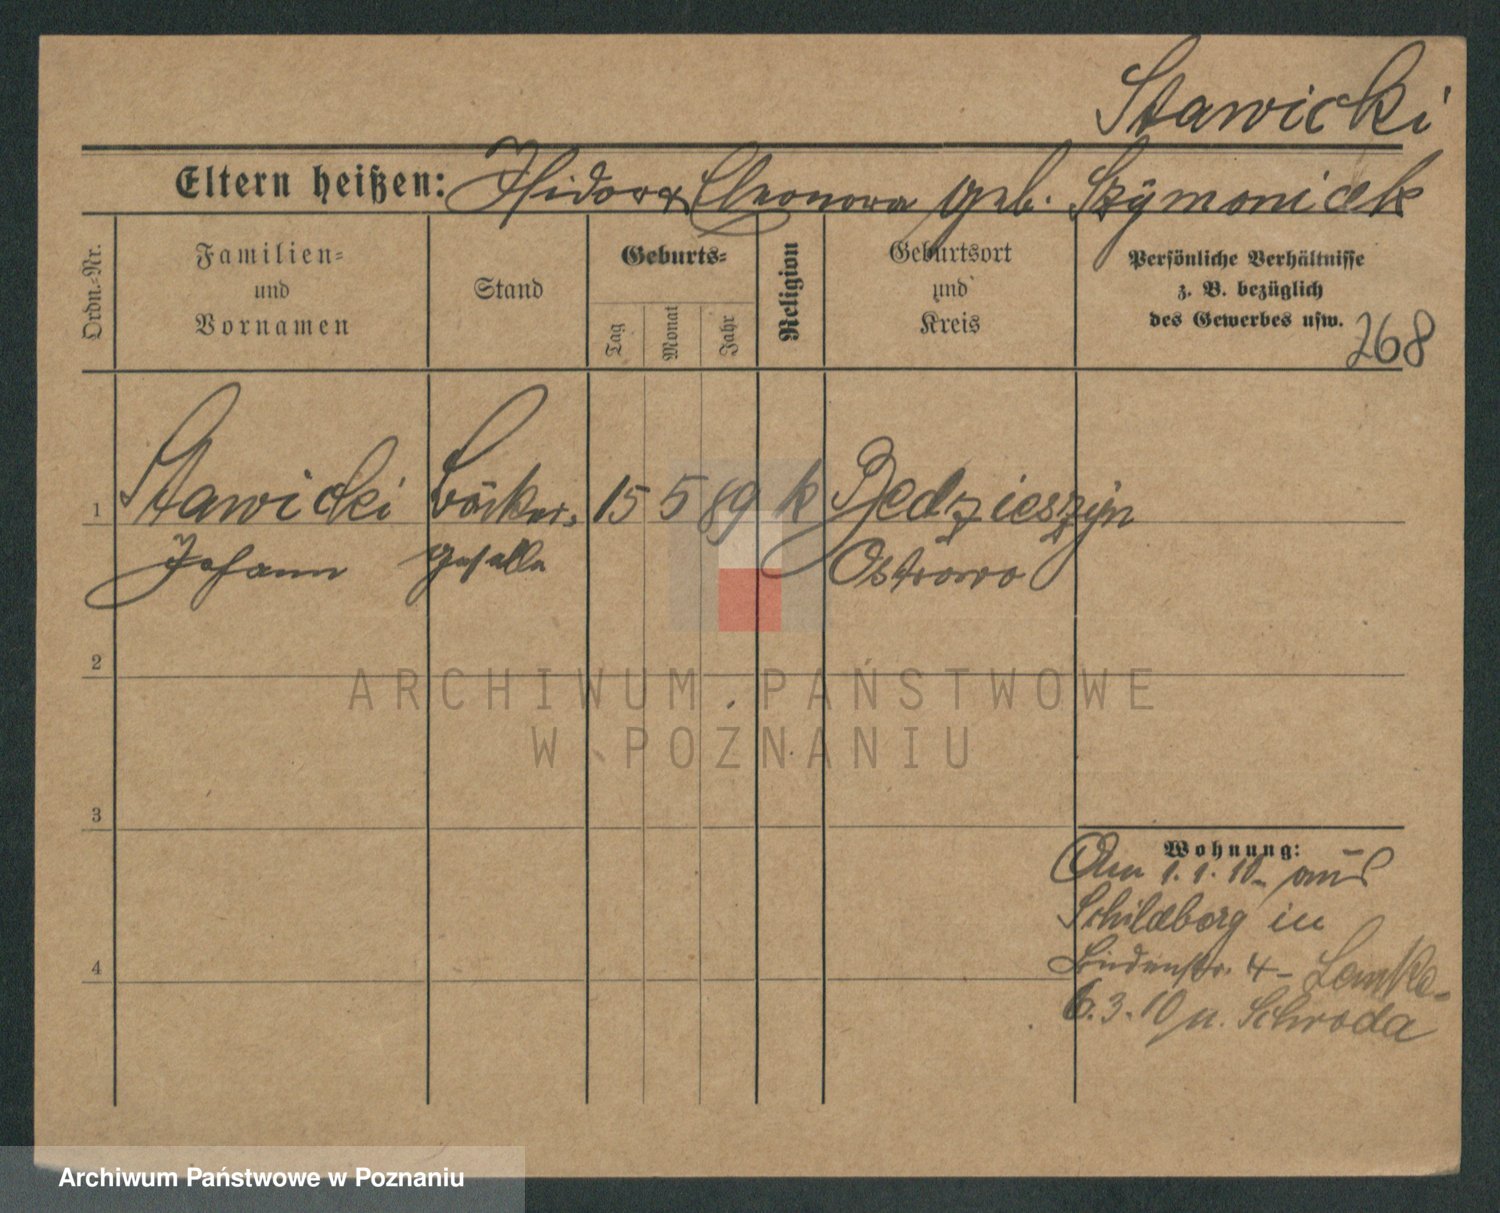 Stawicki
Eltern heißen: Isidor & Eleonora geb. Szymoniak
Ordn.-Nr.
Familien-
und
Vornamen
Stand
Geburts-
Tag
Monat
Jahr
Religion
Geburtsort
und
Kreis
Persönliche Verhältnisse
z. B. bezüglich
des Gewerbes usw.
268
1 Stawicki Bäcker- 15 5 89 k Bedzieszyn
Johann geselle Ostrowo
2
ARCHIWUM PAŃSTWOWE
W POZNANIU
3
Wohnung:
Am 1.1.10 aus
Schildberg in
4
Lindenstr. 4 - Lemke
6.3.10 n. Schroda
Archiwum Państwowe w Poznaniu